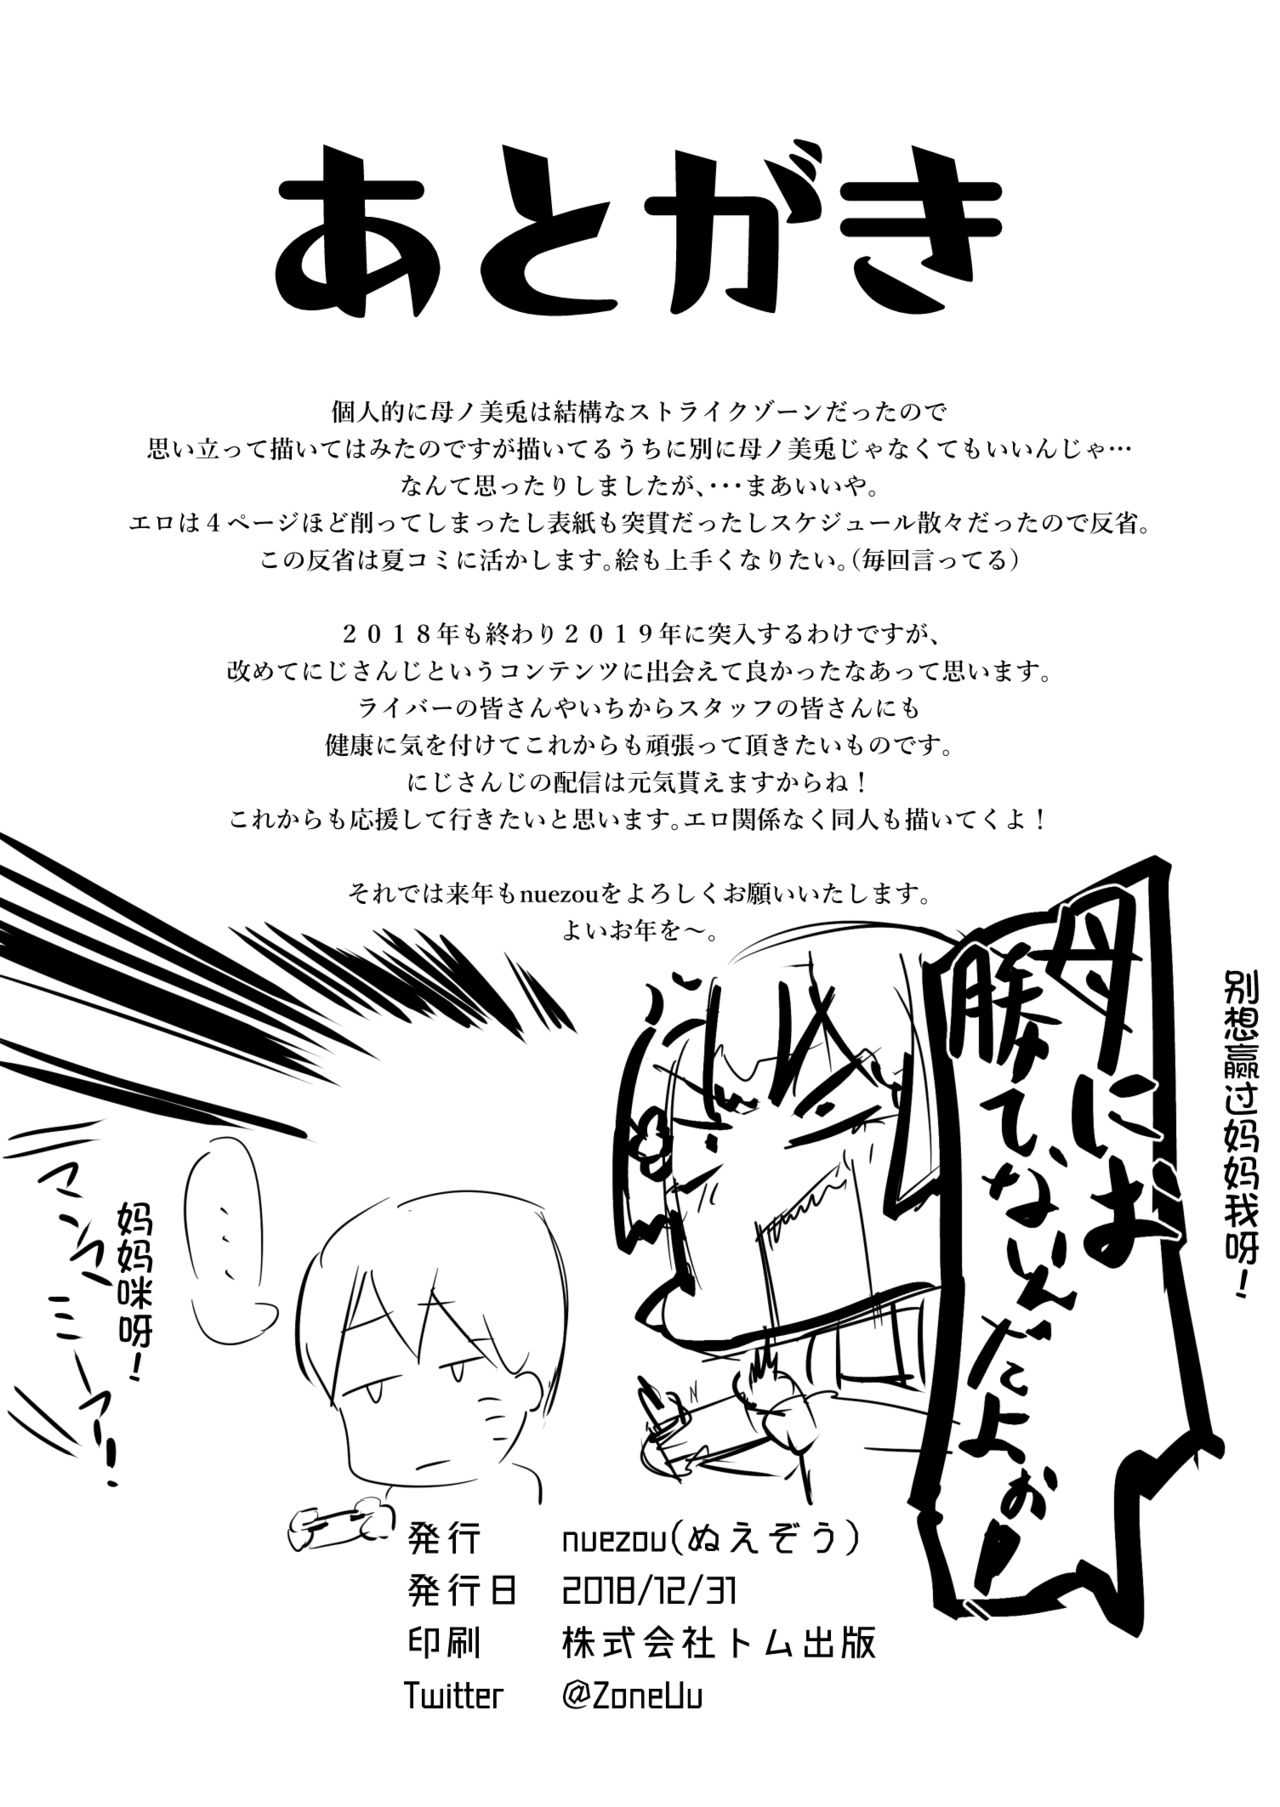 あとがき
個人的に母ノ美兎は結構なストライクゾーンだったので
思い立って描いてはみたのですが描いてるうちに別に母ノ美兎じゃなくてもいいんじゃ…
なんて思ったりしましたが、・・・まあいいや。
エロは４ページほど削ってしまったし表紙も突貫だったしスケジュール散々だったので反省。
この反省は夏コミに活かします。絵も上手くなりたい。（毎回言ってる）
２０１８年も終わり２０１９年に突入するわけですが、
改めてにじさんじというコンテンツに出会えて良かったなあって思います。
ライバーの皆さんやいちからスタッフの皆さんにも
健康に気を付けてこれからも頑張って頂きたいものです。
にじさんじの配信は元気貰えますからね！
これからも応援して行きたいと思います。エロ関係なく同人も描いてくよ！
それでは来年もnuezouをよろしくお願いいたします。
よいお年を～。
母には
勝てないんだよぉ!!
别想赢过妈妈我呀！
・・・
妈妈咪呀！
マンマ
ミーアー!
発行 nuezou(ぬえぞう)
発行日 2018/12/31
印刷 株式会社トム出版
Twitter @ZoneUu